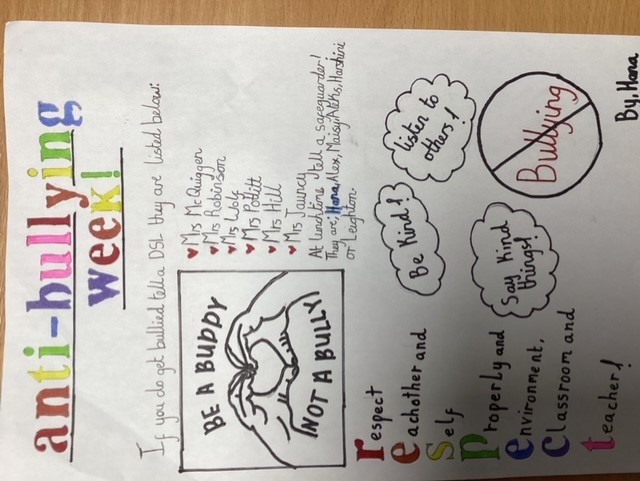 anti-bullying
week!
If you do get bullied tell a DSL they are listed below:
BE A BUDDY
NOT A BULLY!
Mrs McQuiggen
Mrs Robinson
Ms Wolf
Mrs Pollitt
Mrs Hill
Mrs Jauncy
At lunchtime tell a safeguarder!
They are: Hana, Alex, Maisy, Aleks, Harshini
or Leighton.
respect
Eachother and
Self
Properly and
environment,
classroom and
teacher!
Be Kind!
listen to
others!
Say Kind
things!
Bullying
By, Hana